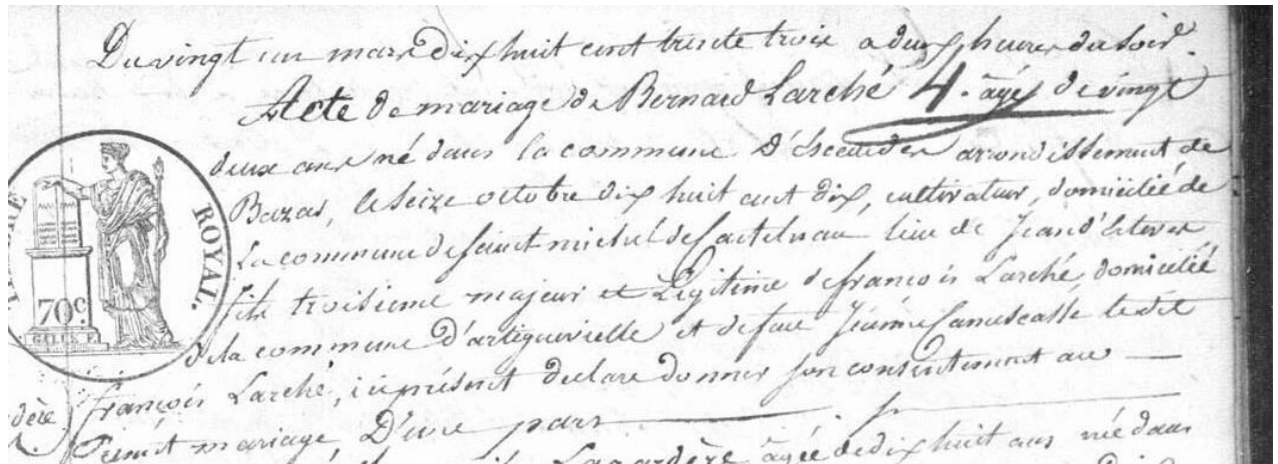 Du vingt un mars dix huit cent trente trois a deux heures du soir.
Acte de mariage de Bernard Larché 4. âgé de vingt
deux ans né dans la commune D'escaudes arrondissement de
Bazas, le seize octobre dix huit cent dix, cultivateur, domicilié de
La commune de saint michel de Castelnau lieu de
fils troisieme majeur et Légitime de françois Larché, domicilié
de la commune D'artiguevielle et de feue Jeanne ledit
françois Larché, ici présent declare donner son consentement au
Présent mariage, D'une part
Lagardère âgée de dix huit ans née dans
dère
ROYAL.
70c.